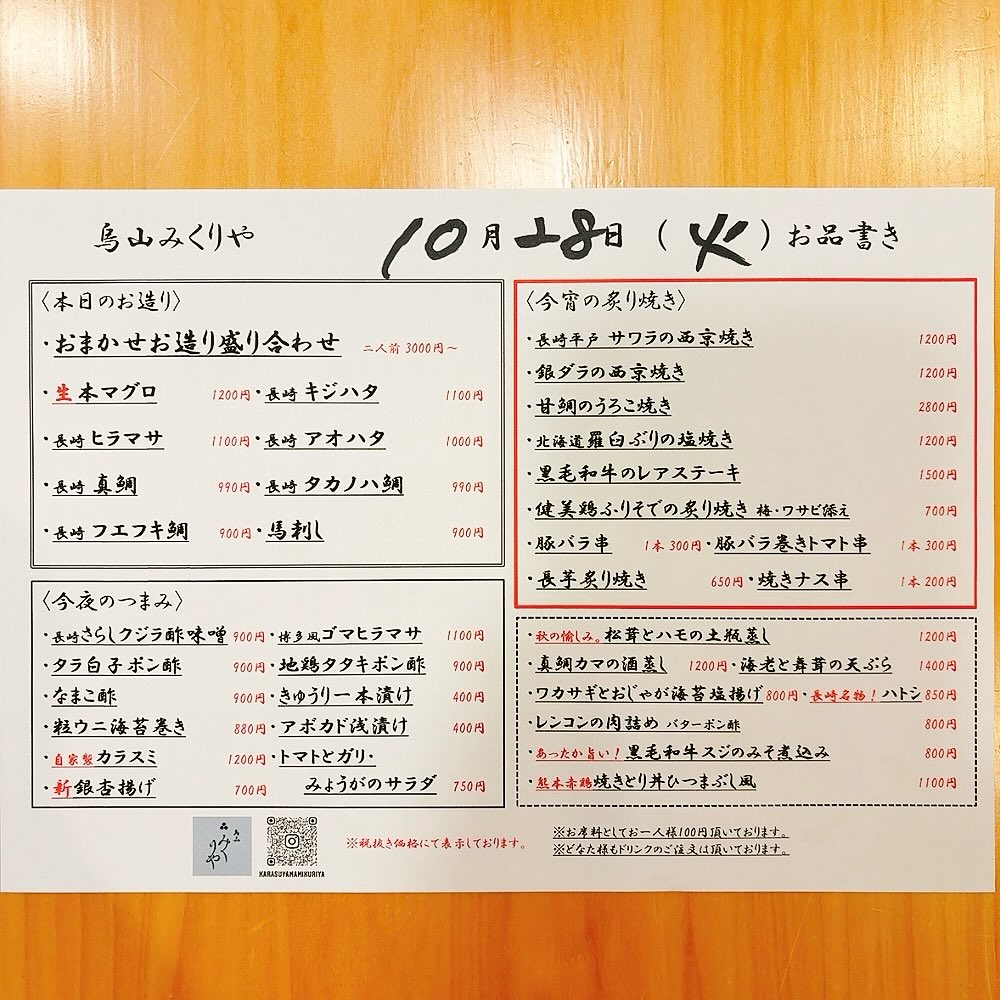 烏山みくりや 10月28日(火)お品書き
〈本日のお造り〉
・おまかせお造り盛り合わせ 二人前 3000円～
・生本マグロ 1200円・長崎 キジハタ 1100円
・長崎 ヒラマサ 1100円・長崎 アオハタ 1000円
・長崎 真鯛 990円・長崎 タカノハ鯛 990円
・長崎 フエフキ鯛 900円・馬刺し 900円
〈今夜のつまみ〉
・長崎さらしクジラ酢味噌 900円・博多風ゴマヒラマサ 1100円
・タラ白子ポン酢 900円・地鶏タタキポン酢 900円
・なまこ酢 900円・きゅうり一本漬け 400円
・粒ウニ海苔巻き 880円・アボカド浅漬け 400円
・自家製カラスミ 1200円・トマトとガリ・
・新銀杏揚げ 700円 みょうがのサラダ 750円
〈今宵の炙り焼き〉
・長崎平戸 サワラの西京焼き 1200円
・銀ダラの西京焼き 1200円
・甘鯛のうろこ焼き 2800円
・北海道羅臼ぶりの塩焼き 1200円
・黒毛和牛のレアステーキ 1500円
・健美鶏ふりそでの炙り焼き 梅・ワサビ添え 700円
・豚バラ串 1本 300円・豚バラ巻きトマト串 1本 300円
・長芋炙り焼き 650円・焼きナス串 1本 200円
・秋の愉しみ。松茸とハモの土瓶蒸し 1200円
・真鯛カマの酒蒸し 1200円・海老と舞茸の天ぷら 1400円
・ワカサギとおじゃが海苔塩揚げ 800円・長崎名物！ハトシ 850円
・レンコンの肉詰め バターポン酢 800円
・あったか旨い！黒毛和牛スジのみそ煮込み 800円
・熊本赤鶏焼きとり丼ひつまぶし風 1100円
烏山
みくりや
KARASUYAMAMIKURIYA
※税抜き価格にて表示しております。
※お席料としてお一人様100円頂いております。
※どなた様もドリンクのご注文は頂いております。